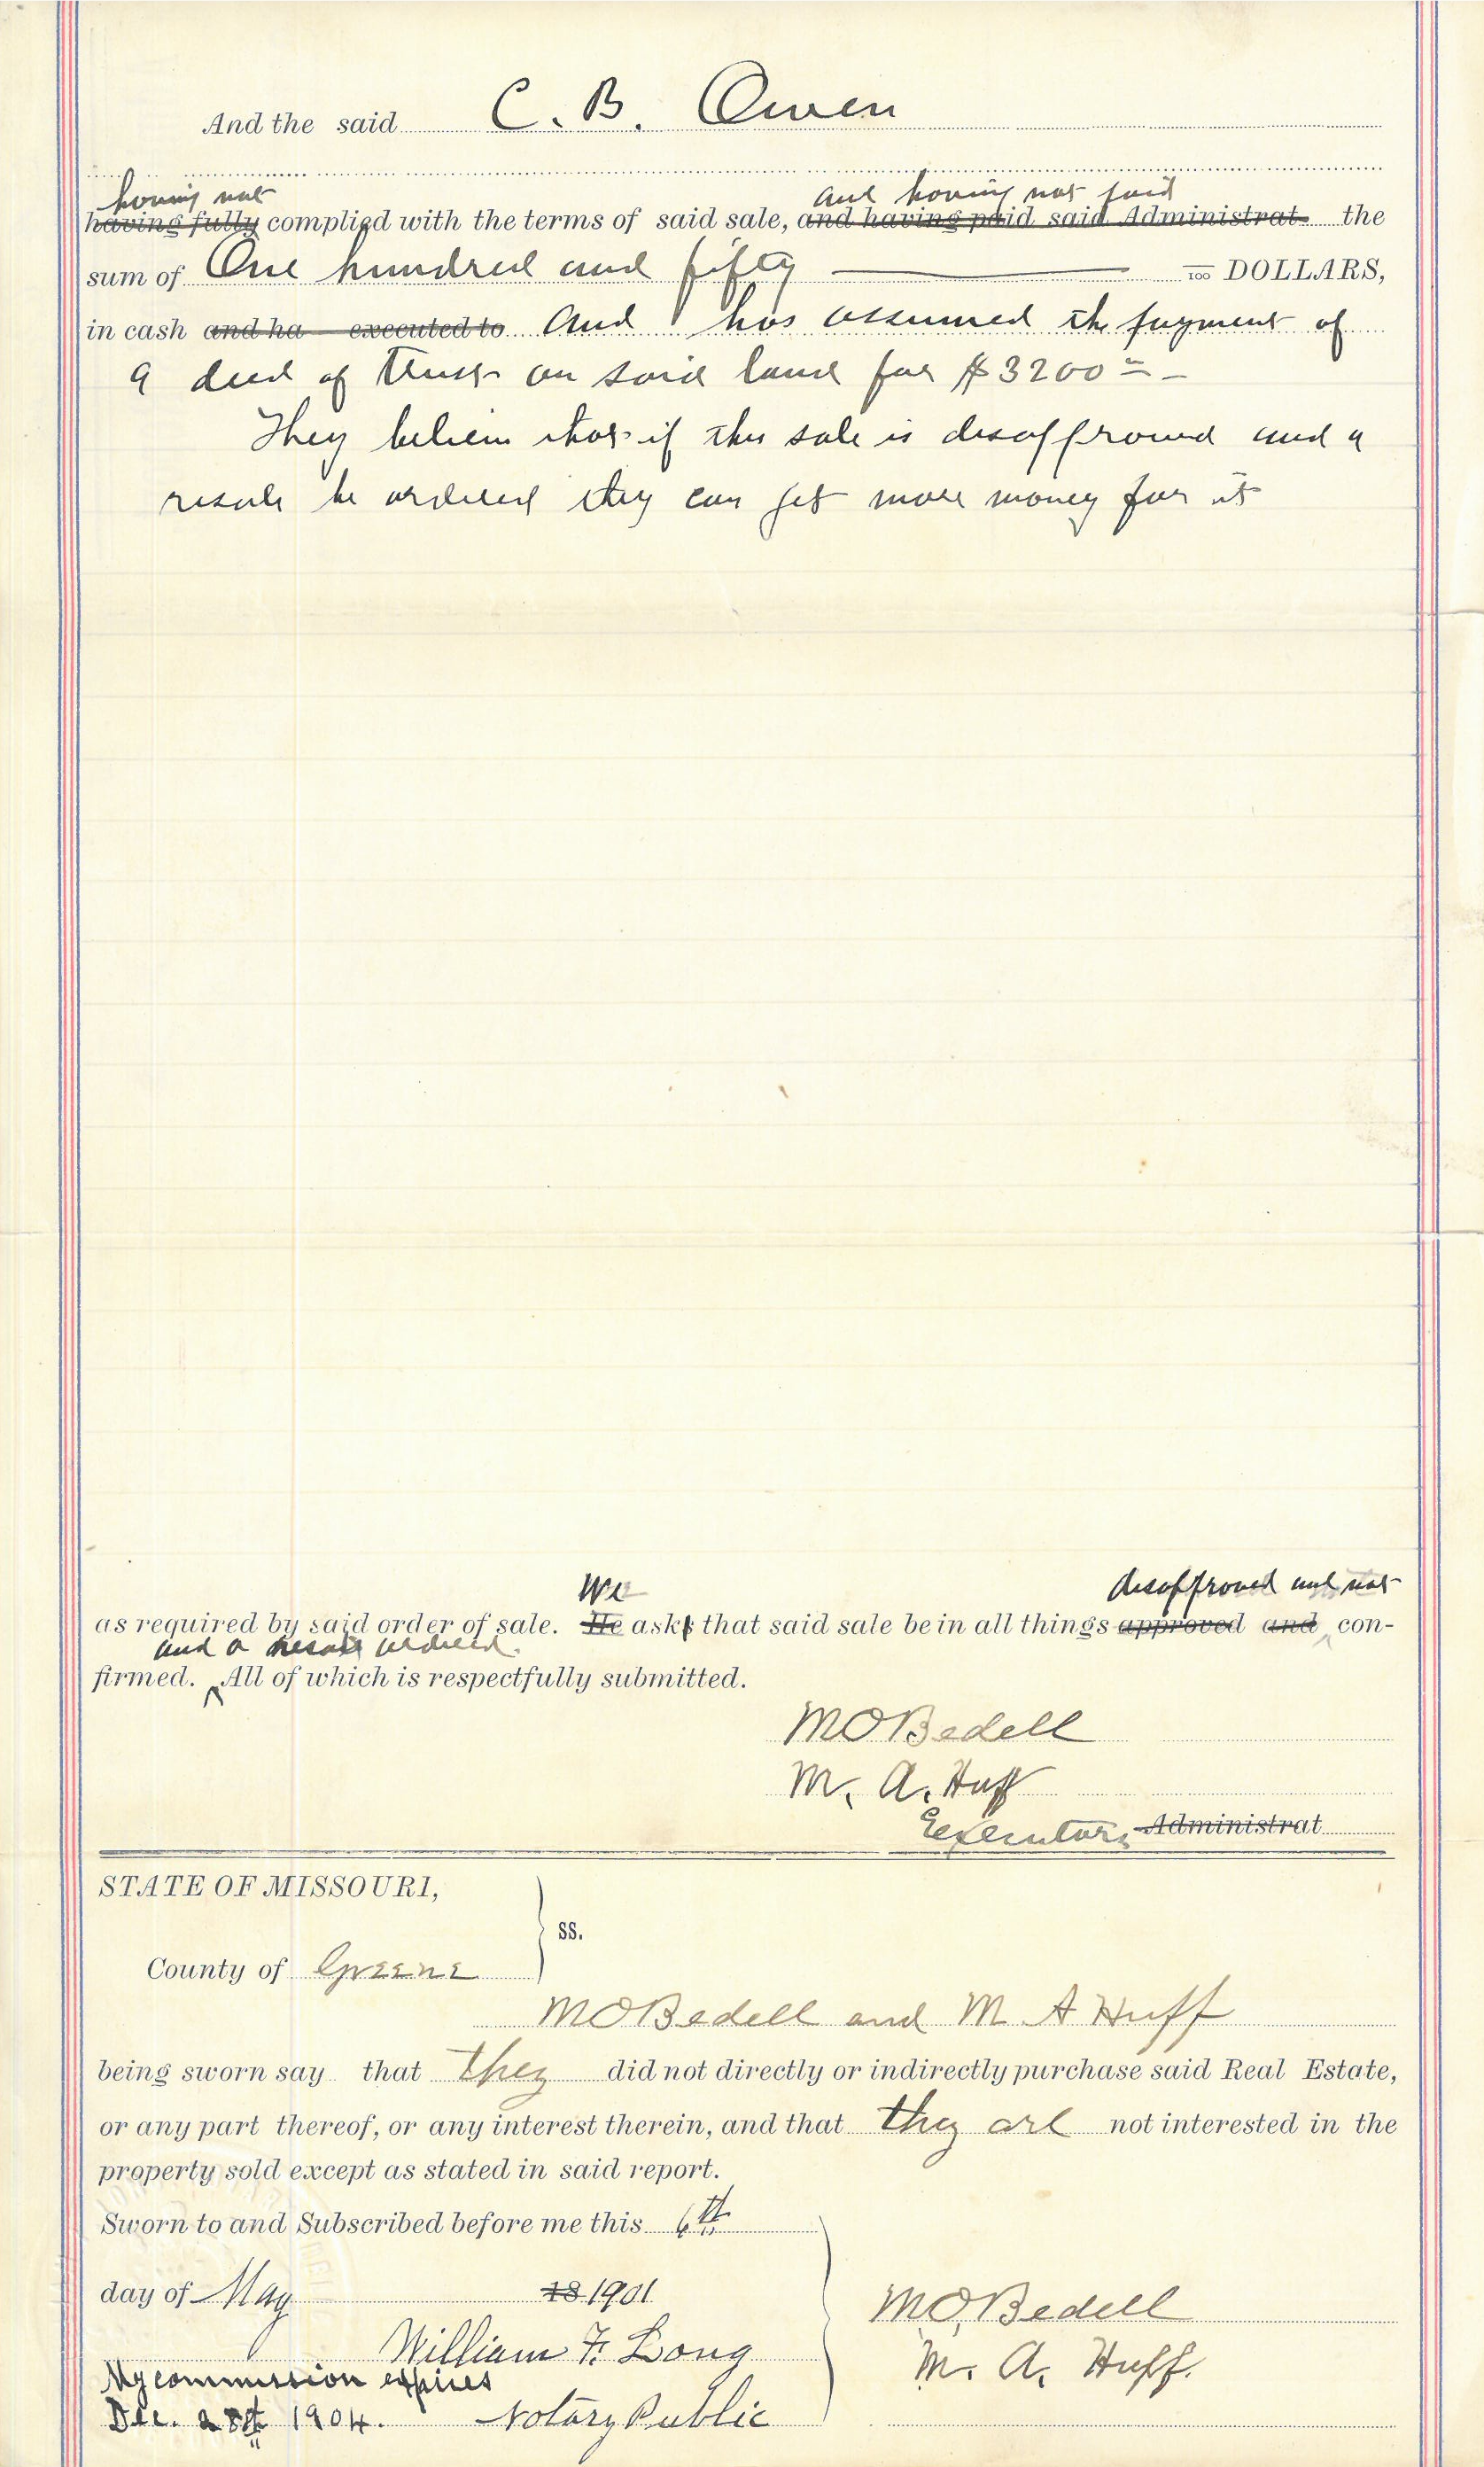 And the said C. B. Owen
having not and having not paid
having fully complied with the terms of said sale, and having paid said Administrat the
sum of One hundred and fifty — 100 DOLLARS,
in cash and ha executed to and has assumed the payment of
a deed of trust on said land for $3200 =
They believe that if this sale is disapproved and a
resale be ordered they can get more money for it
We disapproved and not
as required by said order of sale. He asks that said sale be in all things approved and ^ con-
and a resale ordered.
firmed. ^ All of which is respectfully submitted.
MO Bedell
M. A. Huff
Executors Administrat
STATE OF MISSOURI,
ss.
County of Greene
MO Bedell and M A Huff
being sworn say that they did not directly or indirectly purchase said Real Estate,
or any part thereof, or any interest therein, and that they are not interested in the
property sold except as stated in said report.
Sworn to and Subscribed before me this 6th
day of May 18 1901
MO Bedell
William F. Long
M. A. Huff.
My commission expires
Dec. 28th 1904. Notary Public